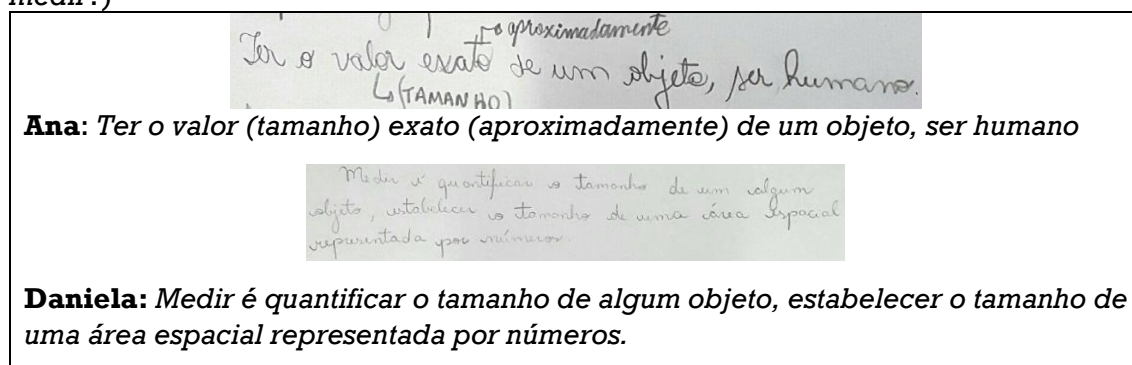 medir?)
aproximadamente
Ter o valor exato de um objeto, ser humano.
(TAMANHO)
Ana: Ter o valor (tamanho) exato (aproximadamente) de um objeto, ser humano
Medir é quantificar o tamanho de um algum
objeto, estabelecer o tamanho de uma área espacial
representada por números.
Daniela: Medir é quantificar o tamanho de algum objeto, estabelecer o tamanho de
uma área espacial representada por números.